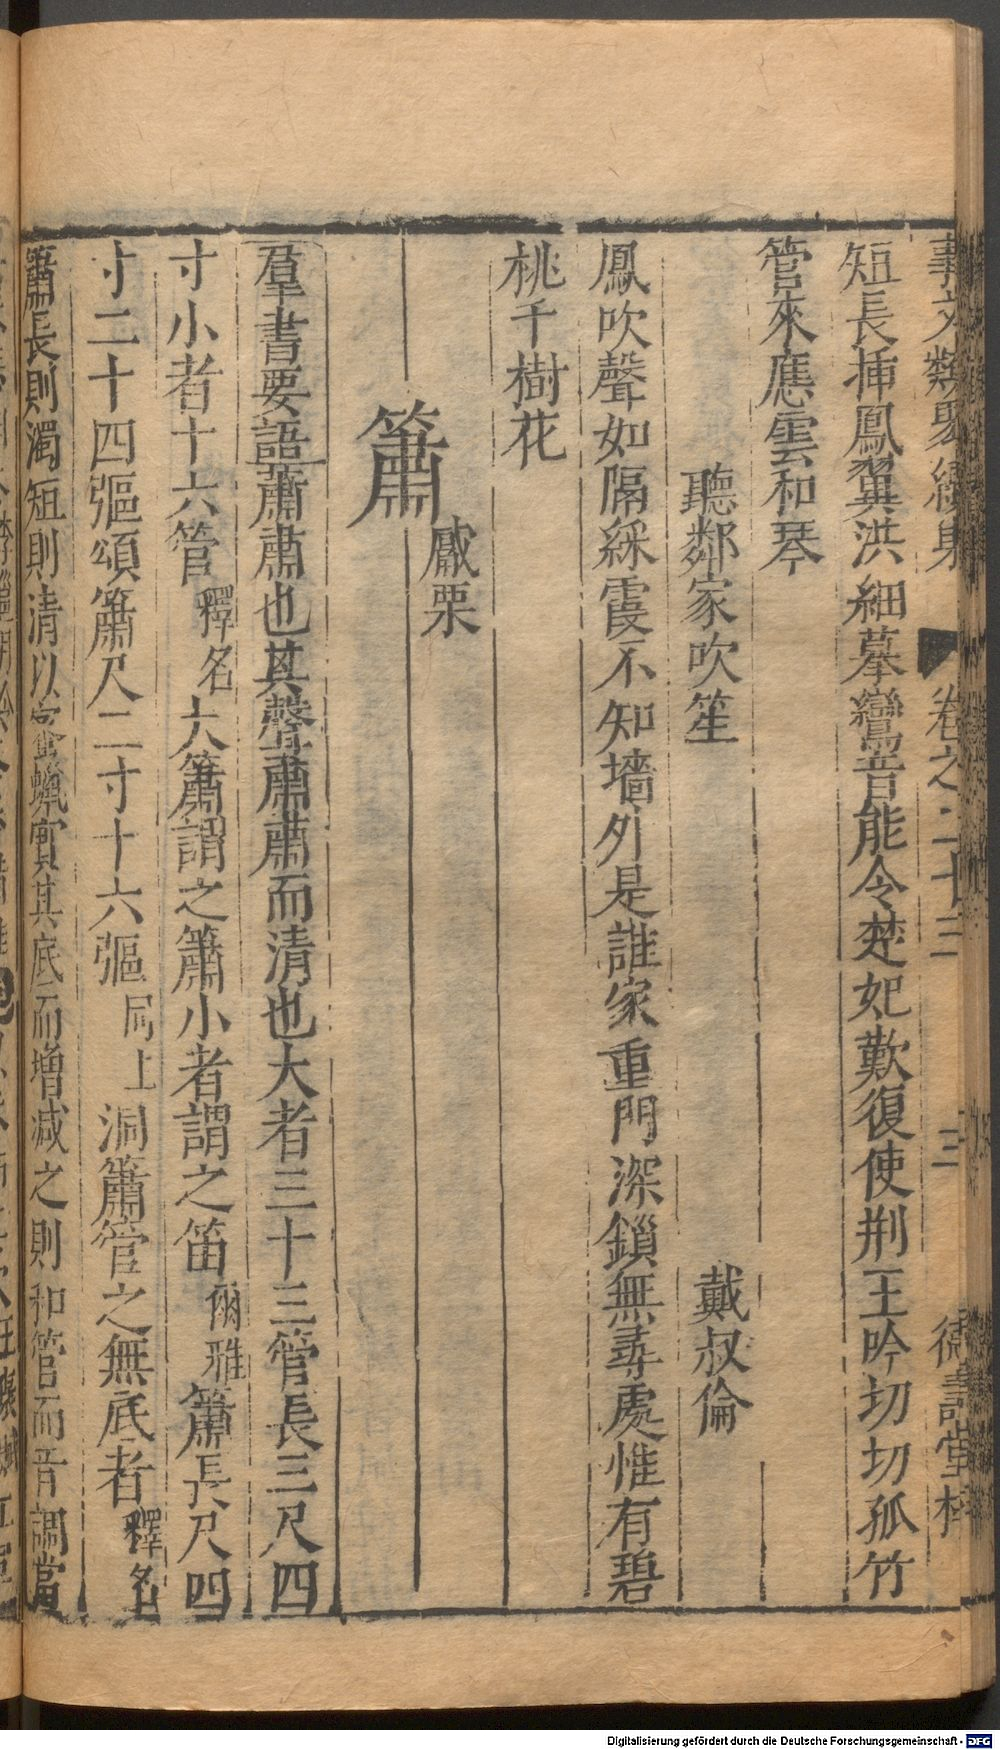 事文類聚續集 卷之二十三 三 德壽堂梓
短長揷鳳翼洪細摹鸞音能令楚妃歎復使荆王吟切切孤竹
管來應雲和琴
聽鄰家吹笙 戴叔倫
鳳吹聲如隔綵霞不知墻外是誰家重門深鎖無尋處惟有碧
桃千樹花
簫
觱栗
羣書要語簫肅也其聲肅肅而清也大者三十三管長三尺四
寸小者十六管釋名大簫謂之簫小者謂之笛爾雅簫長尺四
寸二十四彄頌簫尺二寸十六彄同上洞簫管之無底者釋名
簫長則濁短則清以蜜蠟實其底而增减之則和管而音調當
Digitalisierung gefördert durch die Deutsche Forschungsgemeinschaft - DFG